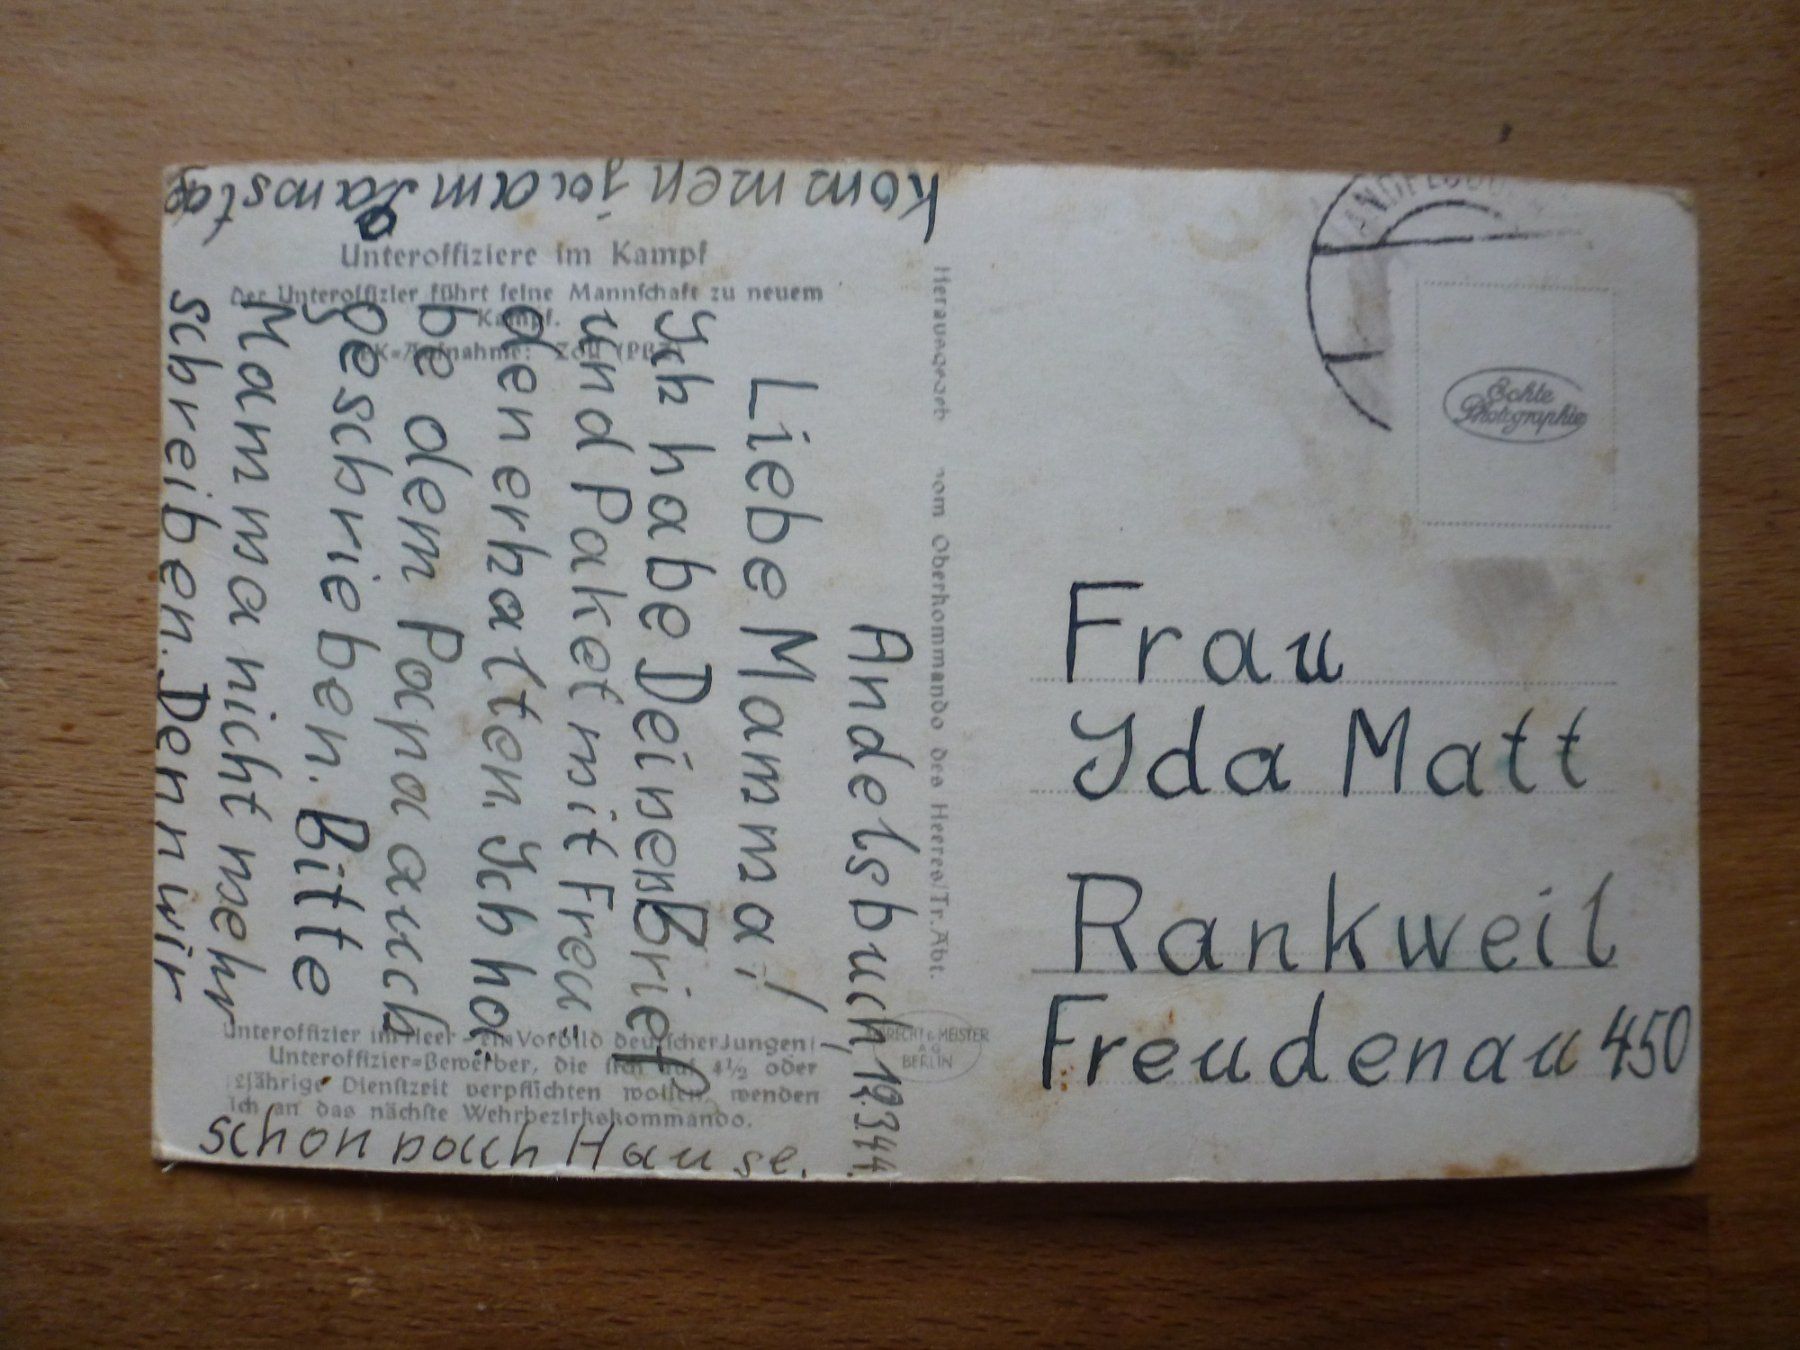 Andelsbuch,
Liebe Mamma!
Ich habe Deinen Brief
und Paket mit Freu-
den erhalten. Ich ha-
be dem Papa auch
geschrieben. Bitte
Mamma nicht mehr
schreiben. Denn wir
kommen ja am Samstag
schon nach Hause.
Unteroffiziere im Kampf
Der Unteroffizier führt seine Mannschaft zu neuem
Kampf.
PK=Aufnahme: Zoll
Unteroffizier im Heer - ein Vorbild deutscher Jungen!
Unteroffizier=Bewerber, die sich auf 4½ oder
jährige Dienstzeit verpflichten wollen, wenden
sich an das nächste Wehrbezirkskommando.
Herausgegeb vom Oberkommando des Heeres/Tr. Abt.
& MEISTER
AG
BERLIN
Echte
Photographie
Frau
Ida Matt
Rankweil
Freudenau 450